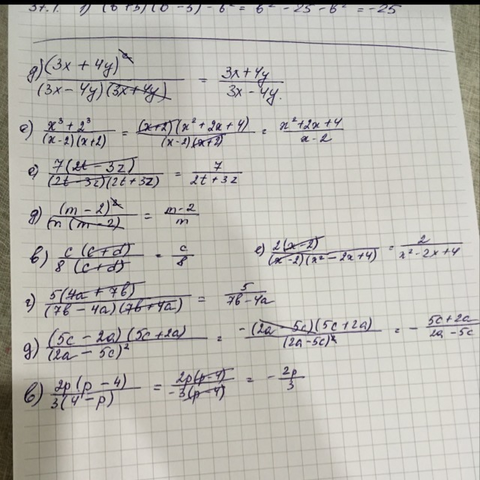 37.1. г) (6+5)(6-5) - 6² = 6² - 25 - 6² = -25
д) (3x + 4y)² / (3x - 4y)(3x+4y) = 3x+4y / 3x-4y.
е) x³ + 2³ / (x-2)(x+2) = (x+2)(x²+2x+4) / (x-2)(x+2) = x²+2x+4 / x-2
е) 7(2t - 3z) / (2t - 3z)(2t+3z) = 7 / 2t+3z
д) (m-2)² / m(m-2) = m-2 / m
в) c(c+d) / 8(c+d) = c / 8 е) 2(x-2) / (x-2)(x²-2x+4) = 2 / x²-2x+4
г) 5(4a + 7b) / (7b - 4a)(7b+4a) = 5 / 7b-4a
д) (5c - 2a)(5c+2a) / (2a - 5c)² = -(2a - 5c)(5c+2a) / (2a-5c)² = - 5c+2a / 2a-5c
в) 2p(p-4) / 3(4-p) = 2p(p-4) / -3(p-4) = - 2p / 3